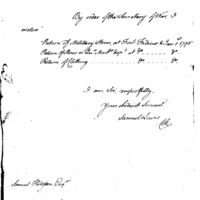 By order of the Secretary of War I
enclose
Return of Military Stores, at Fort Frederick to Jany 1st 1795
Return of Stores in Qur Mastr Dept at Do Do
Return of Clothing Do Do
I am Sir, respectfully,
Your Obedient Servant
Samuel Lewis
Samuel Hodgdon Esqr